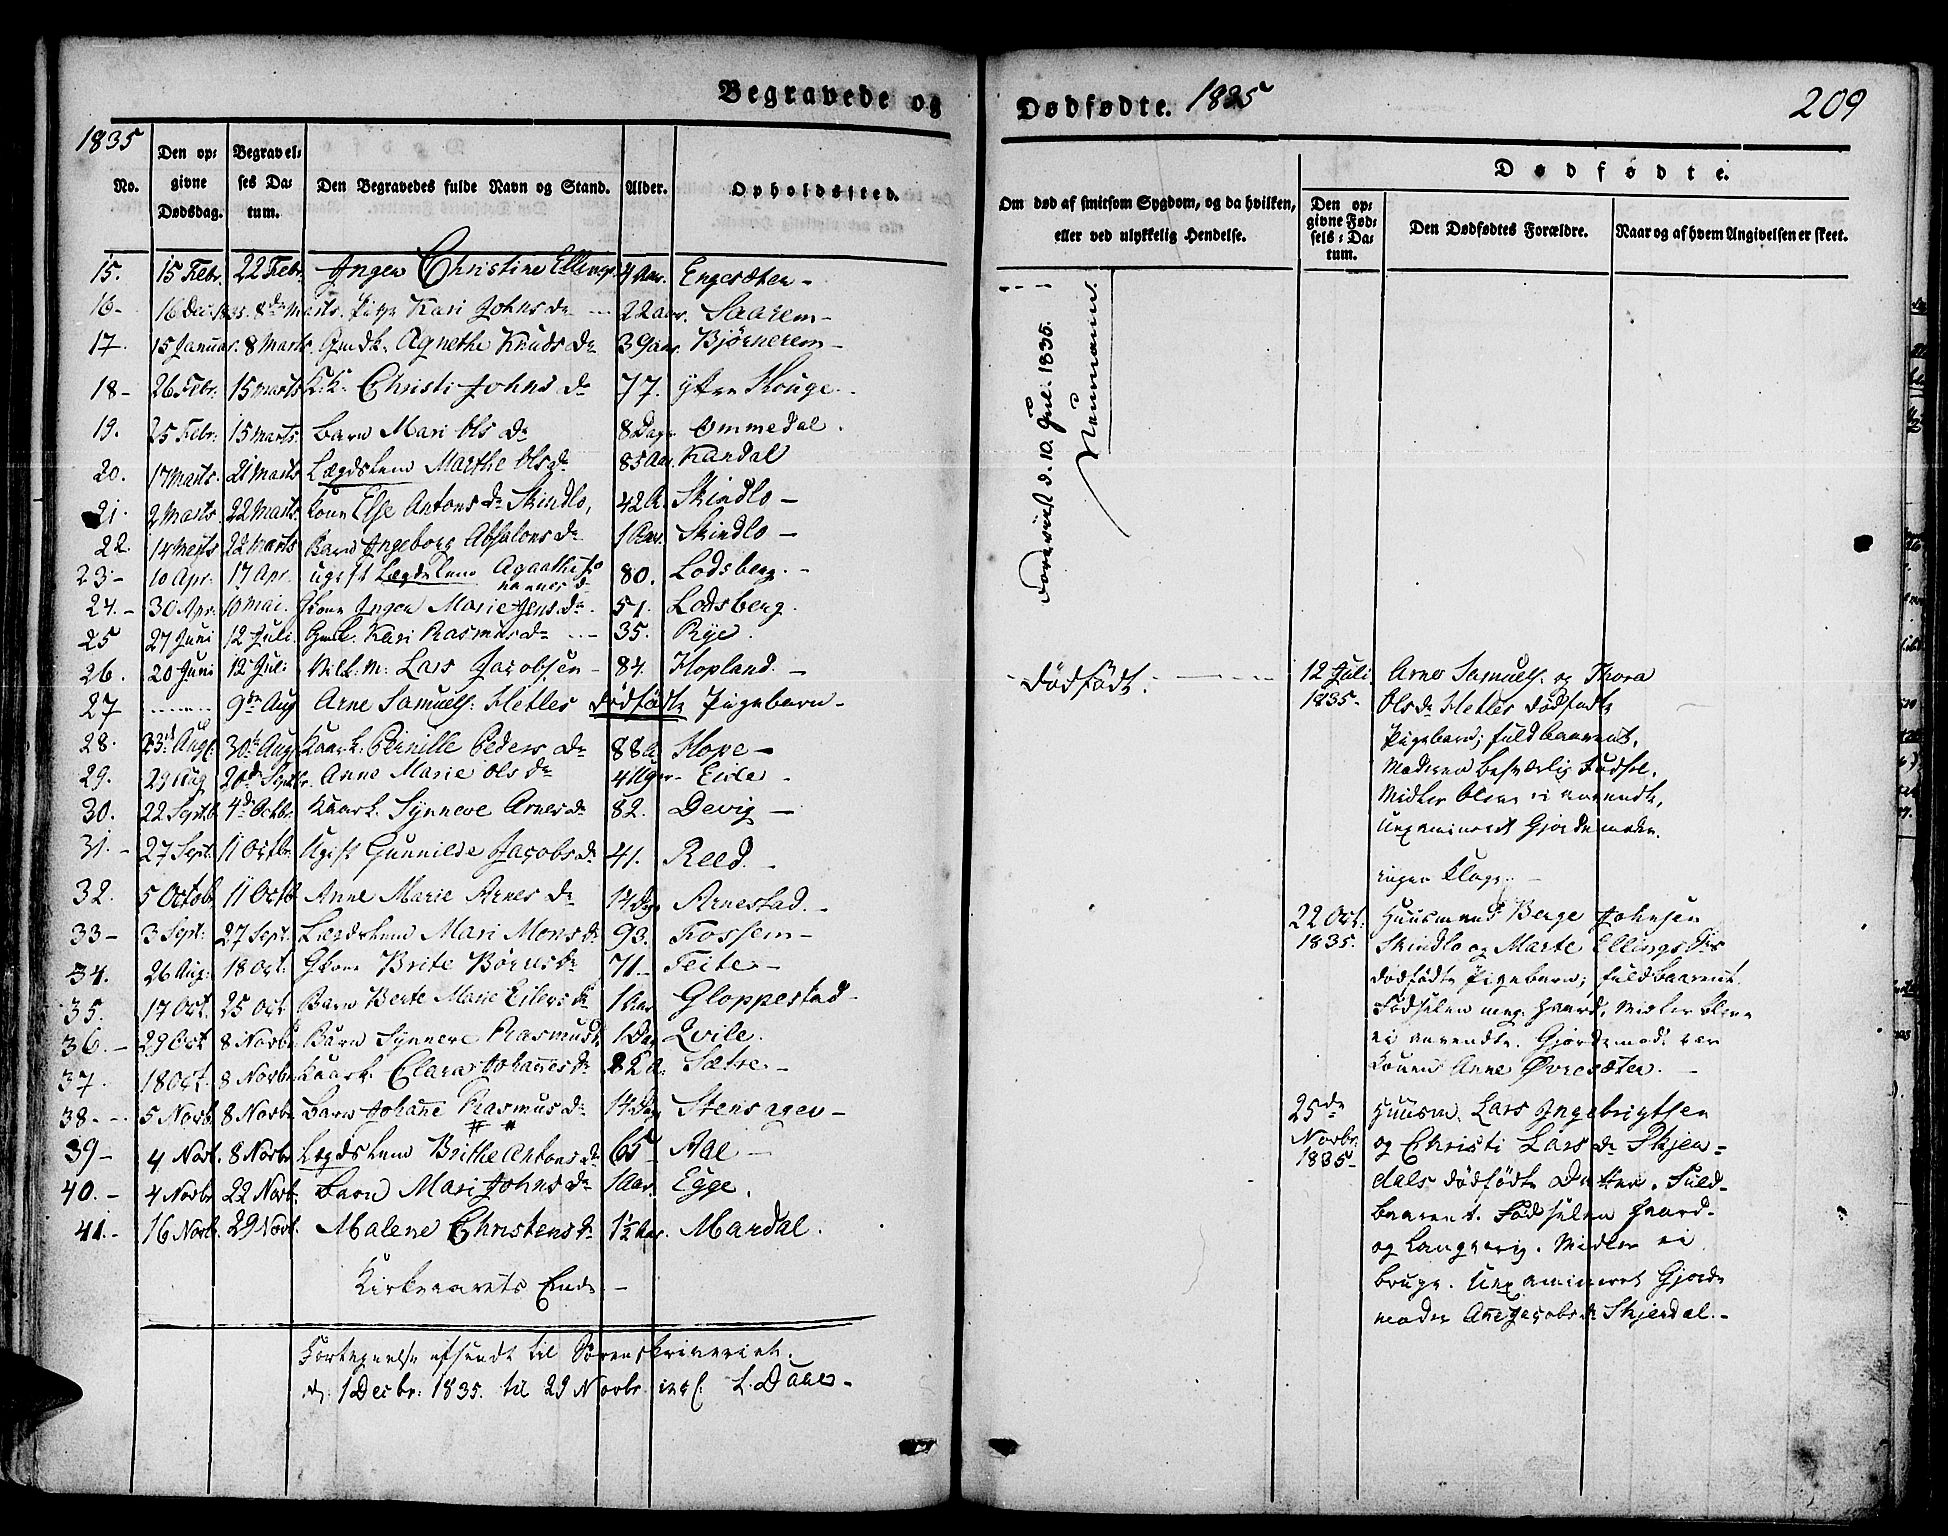 Begravede og
1835
No.
Den op-
givne
Dødsdag.
Begravel-
ses Da-
tum.
Den Begravedes fulde Navn og Stand.
Alder.
Opholdssted.
15. 15 Febr. 22 Febr. Ingen Christine Ellings 4 Aar. Engesæten -
16 - 16 Dec. 8de Marts. Pige Kari Johns Dr 22 aar. Saarem -
17. 15 Januar. 8 Marts. Gmdk. Agnethe Knuds Dr 39 aar. Bjørnerem -
18 - 26 Febr. 15 Marts K.k. Christi Johns Dr 77. ytre Houge -
19. 25 Febr. 15 Marts. Barn Mari Ols Dr 8 Dage Ommedal.
20. 17 Marts. 21 Marts Lægdslem Marthe Ols Dr 85 Aar. Kandal
21. 2 Marts 22 Marts. Kone Else Antons Dr Skindlo, 42 A. Skindlo -
22. 14 Marts 22 Marts Barn Ingeborg Absalons Dr 1 Aar. Skindlo -
23 - 10 Apr. 17 Apr. ugift Lægdslem Agaathe To
nannes d 80. Lodsberg. -
24. - 30 Apr. 10 Mai. Gkone Ingen Marie Jens Dr. 51. Lodsberg.
25 27 Juni 12 Juli. Gmk. Kari Rasmus Dr --- 35. Rye.
26. 20 Juni 12 Jul: Lars Jacobsen - 84. Hopland. -
27 9de Aug Arne Samuels: Hetles dødfødte Pigebarn -
28. 23d Aug. 30te Aug. Kaark. Pernille Peders Dr 88 a Hope -
29. 29 Aug 20de Septbr. Anne Marie Ols Dr 4 Uger - Eide -
30. 22 Septb. 4de Octbr. Kaark. Synneve Arnes Dr 82. Devig -
31. - 27 Sept. 11 Octbr. Ugift Gunnilde Jacobs Dr 41. Reed. -
32. 5 Octob. 11 Octb Anne Marie Arnes Dr 14 Dge Arnestad. -
33 - 3 Sept: 27 Sept. Lægdslem Mari Mons Dr 93. Fossem -
34. 26 Aug: 18 Oct. Gkone Brite Børues Dr 71 - Teite -
35. 17 Oct. 25 Oct Barn Berte Marie Eilers Dr 1 Aar Gloppestad -
36. - 29 Oct 8 Novbr Barn Synneve Rasmusd. 1 Dag Qvile.
37. 18 Oct. 8 Novbr Kaark. Clara Johannes Dr 82 a. Sætre -
38 - - 5 Novb. 8 Novbr Barn Johanne Rasmus Dr 14 Dag Stensagen -
39 - 4 Novb. 8 Novbr Lægdslem Brithe Antons Dr 65 - Aae -
40. - 4 Novbr 22 Novb. Barn Mari Johns Dr 1 Aar. Egge.
41. - 16 Novb. 29 Novb. Malene Christens Dr 1½ Aar. Mardal.
Kirkeaarets Ende. -
Fortegnelse afsendt til Sorenskriveriet.
d. 1 Decbr. 1835. til 29 Novbr. incl. L. Daae -
Dødfødte. 1835
209
Om død af smitsom Sygdom, og da hvilken,
eller ved ulykkelig Hendelse.
Dødfødte.
Den op-
givne Fød-
sels-Da-
tum.
Den Dødfødtes Forældre.
Naar og af hvem Angivelsen er skeet.
Forevist d. 10. Jul. 1835.
Neumann.
- Dødfødt.
12 Juli
1835 -
Arne Samuels: og Thora
Ols Dr Hetles dødfødte
Pigebarn; fuldbaarent,
Moderen besværlig Fødsel.
Midler bleve ei anvendte,
Uexamineret Gjordemoder.
ingen Klage. -
22 Oct.
1835.
Huusmand Berge Johnsen
Skindlo og Marte Ellings Drs
dødfødte Pigebarn; fuldbaarent.
Fødselen meg. haard, Midler bleve
ei anvendte. Gjordemod. var
Konen Anne Øvresæter. -
25de
Novbr
1835 -
Huusm. Lars Ingebrigtsen
og Christi Lars Dr Skjen-
dals dødfødte Datter. Fuld-
baarent. Fødselen haard
og Langvarig. Midler ei
bruge. Uexamineret Gjorde
moder Ane Jacobs Dr Skjerdal. -